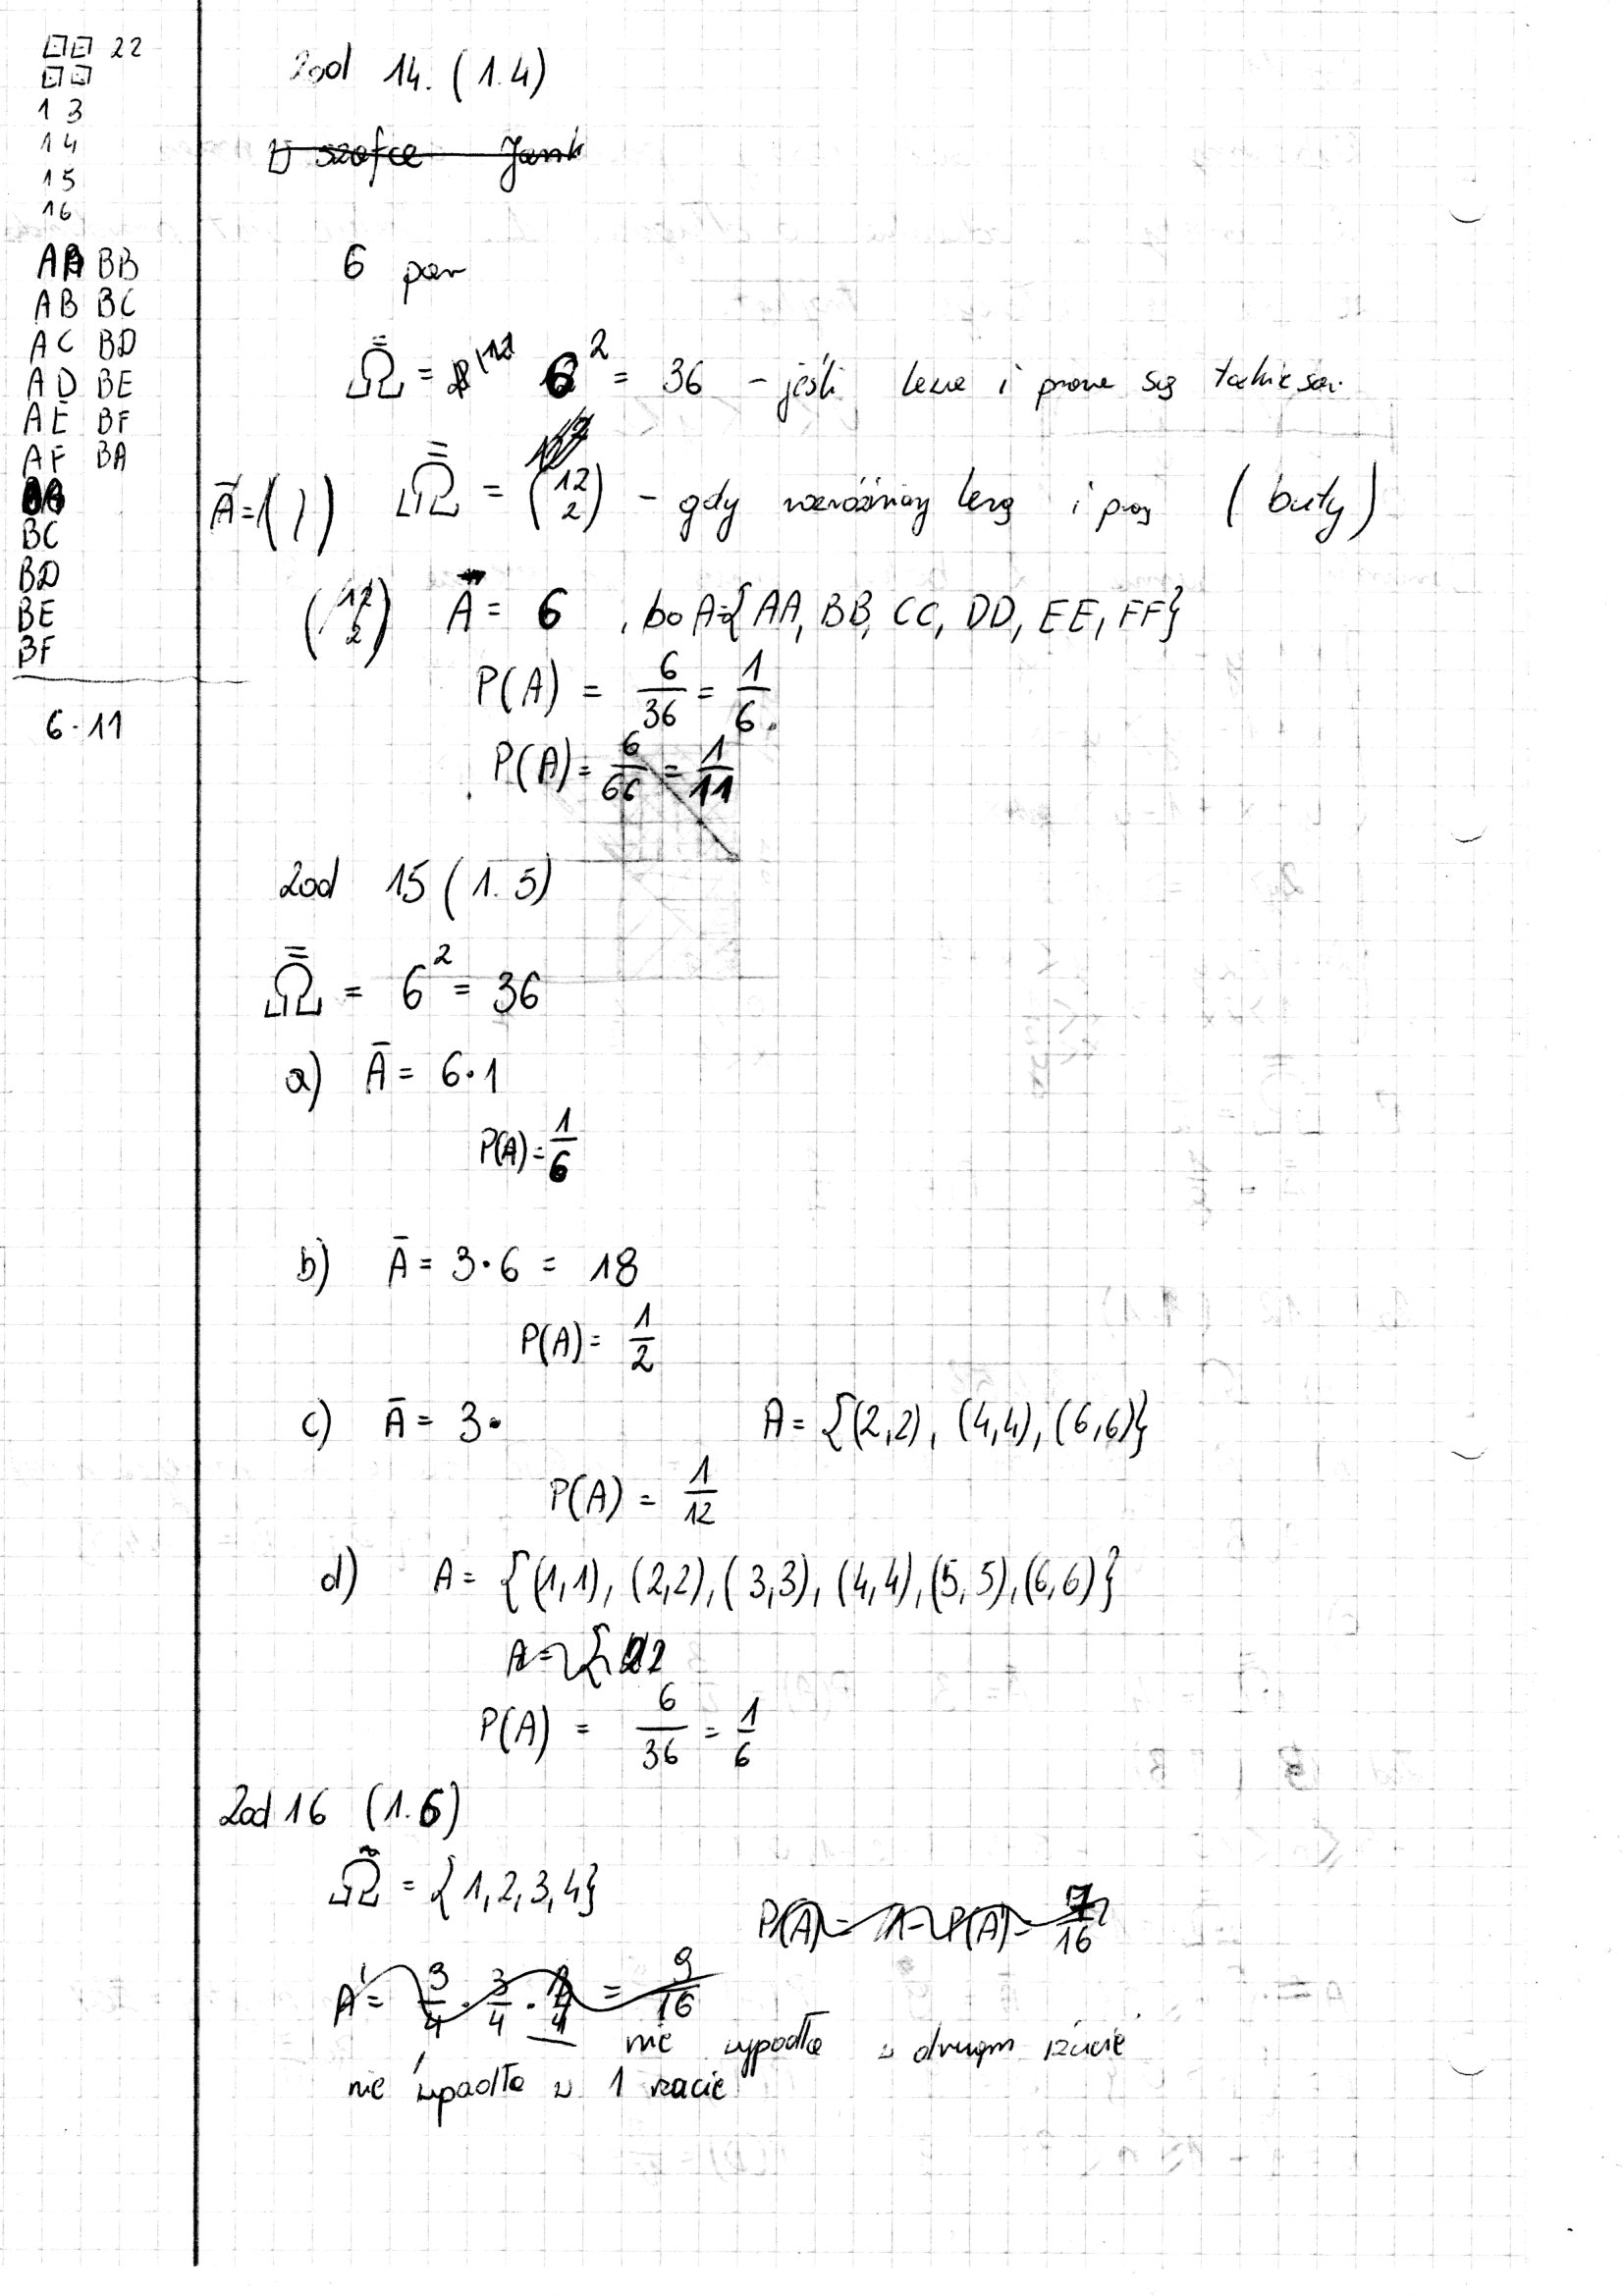 22
1 3
1 4
1 5
1 6
BB
AB BC
AC BD
AD BE
AE BF
AF BA
BC
BD
BE
BF
6·11
Zad 14. (1.4)
W szafce Jank
6 par
Ω̿ = 6² = 36 – jeśli lewe i prawe są takie same
A̅ = ( )
Ω̿ = (12 2) – gdy rozróżniamy lewy i prawy (buty)
(12 2) A̅ = 6, bo A={AA, BB, CC, DD, EE, FF}
P(A) = 6/36 = 1/6.
P(A) = 6/66 = 1/11
Zad 15 (1.5)
Ω̿ = 6² = 36
a) A̅ = 6·1
P(A) = 1/6
b) A̅ = 3·6 = 18
P(A) = 1/2
c) A̅ = 3· A = {(2,2), (4,4), (6,6)}
P(A) = 1/12
d) A = {(1,1), (2,2), (3,3), (4,4), (5,5), (6,6)}
A = {
P(A) = 6/36 = 1/6
Zad 16 (1.6)
Ω = {1,2,3,4}
P(A) = 1 - P(A') = 7/16
A' = 3/4 · 3/4 · = 9/16
nie wypadła w drugim rzucie
nie wpadła w 1 rzucie